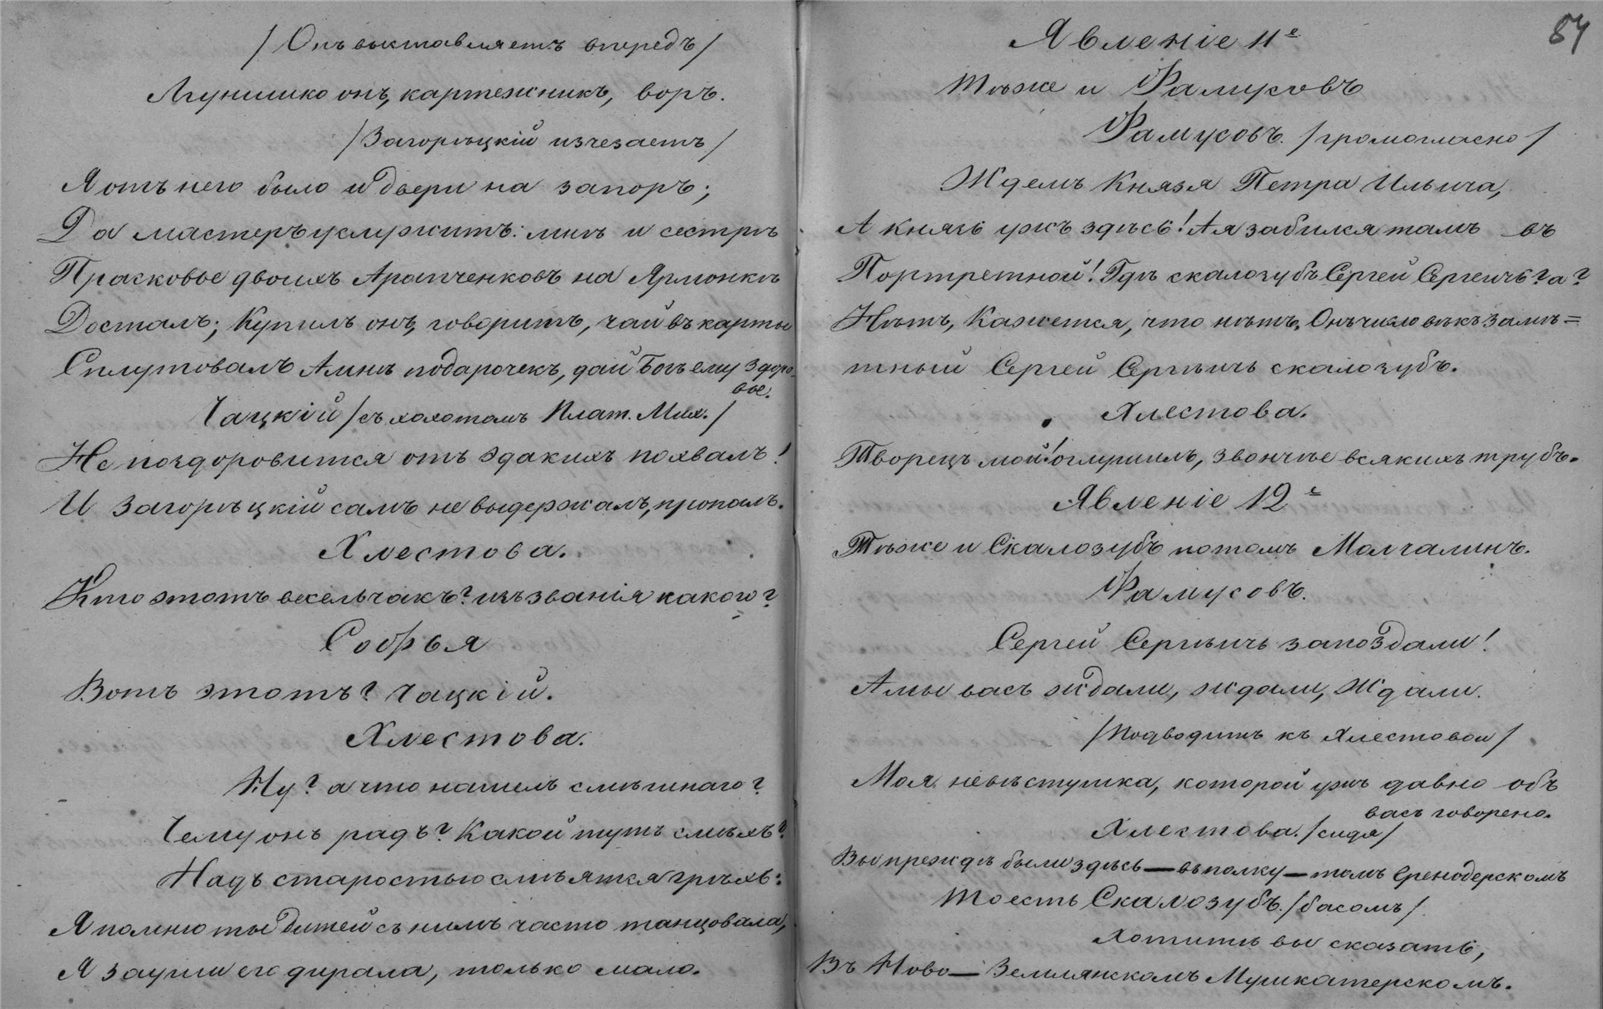 /Онъ выставляетъ впередъ/
Лгунишко онъ, картежникъ, воръ.
/Загорѣцкій изчезаетъ/
Я отъ него было и двери на запоръ;
Да мастеръ услужить: мнѣ и сестрѣ
Прасковье двоихъ Арапченковъ на Ярмонкѣ
Досталъ; Купилъ онъ, говоритъ, чай въ карты
Сплутовалъ А мнѣ подарочекъ, дай Богъ ему здоро
вье.
Чацкій /съ хохотомъ Плат. Мих./
Не поздоровится отъ эдакихъ похвалъ!
И Загорѣцкій самъ не выдержалъ, пропалъ.
Хлестова.
Кто этотъ весельчакъ? изъ званія какого?
Софья
Вотъ этотъ? Чацкій.
Хлестова.
Ну? а что нашелъ смѣшнаго?
Чему онъ радъ? Какой тутъ смѣхъ?
Надъ старостью смѣятся грѣхъ:
Я помню ты дитей съ нимъ часто танцовала,
Я за уши его дирала, только мало.
84
Явленіе 11е
Тѣже и Фамусовъ
Фамусовъ. /громогласно/
Ждемъ Князя Петра Ильича,
А князь ужъ здѣсь! А я забился тамъ въ
Портретной! Гдѣ скалозубъ Сергей Сергеичь? а?
Нѣтъ, Кажется, что нѣтъ, Онъ человѣкъ замѣ=
тный Сергей Сергѣичь скалозубъ.
Хлестова.
Творецъ мой! оглушилъ, звончѣе всякихъ трубъ.
Явленіе 12е
Тѣже и Скалозубъ потомъ Молчалинъ.
Фамусовъ.
Сергей Сергѣичь запоздали!
А мы васъ ждали, ждали, Ждали.
/Подводитъ къ Хлестовой/
Моя невѣстушка, которой ужъ давно объ
васъ говорено.
Хлестова. /сидя/
Вы прежде были здѣсь — въ полку — томъ Гренадерскомъ
Скалозубъ. /басомъ/
То есть Хотите вы сказать,
Въ Ново — Землянскомъ Мушкатерскомъ.